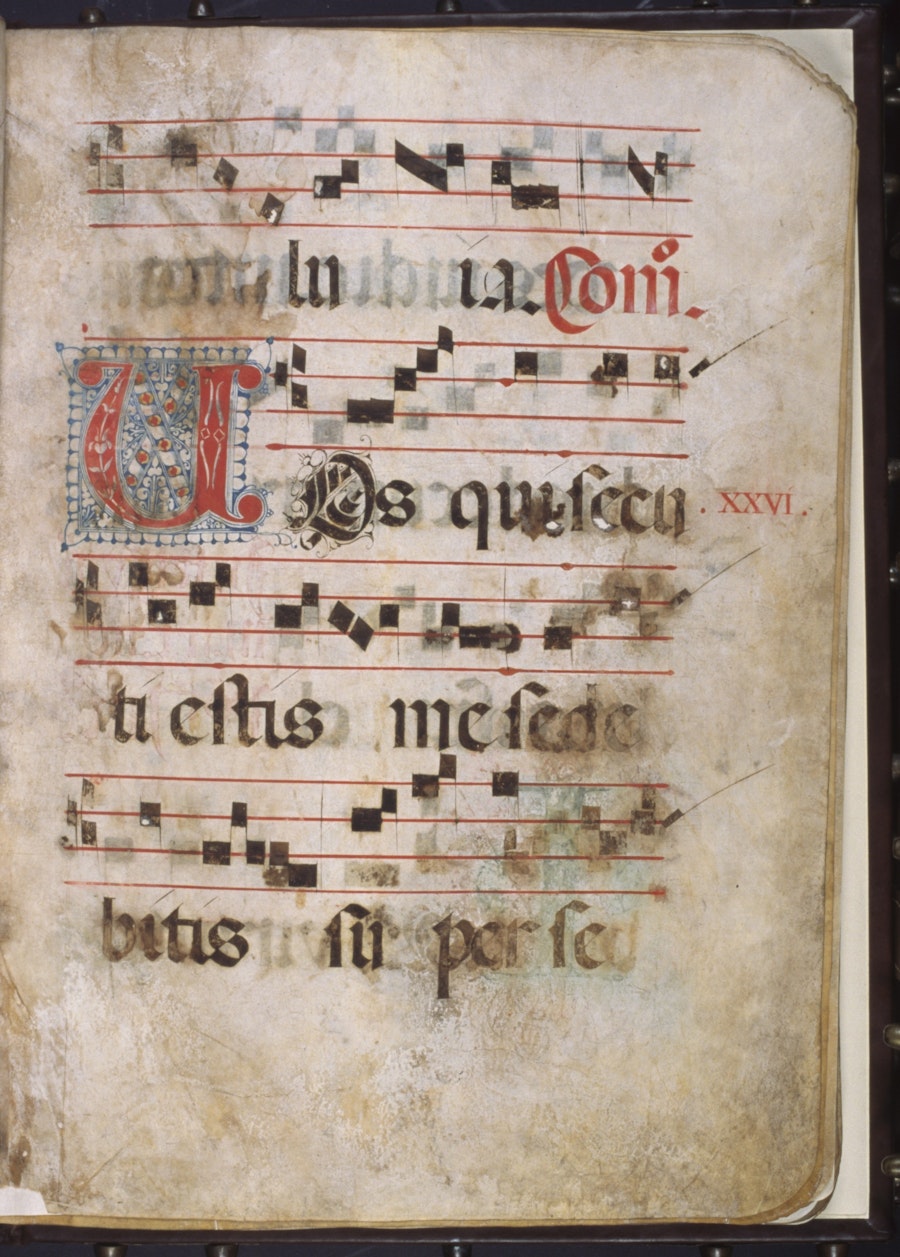 lu ia. Com̄.
UOs qui secu
. XXVI .
ti estis me sede
bitis su per se